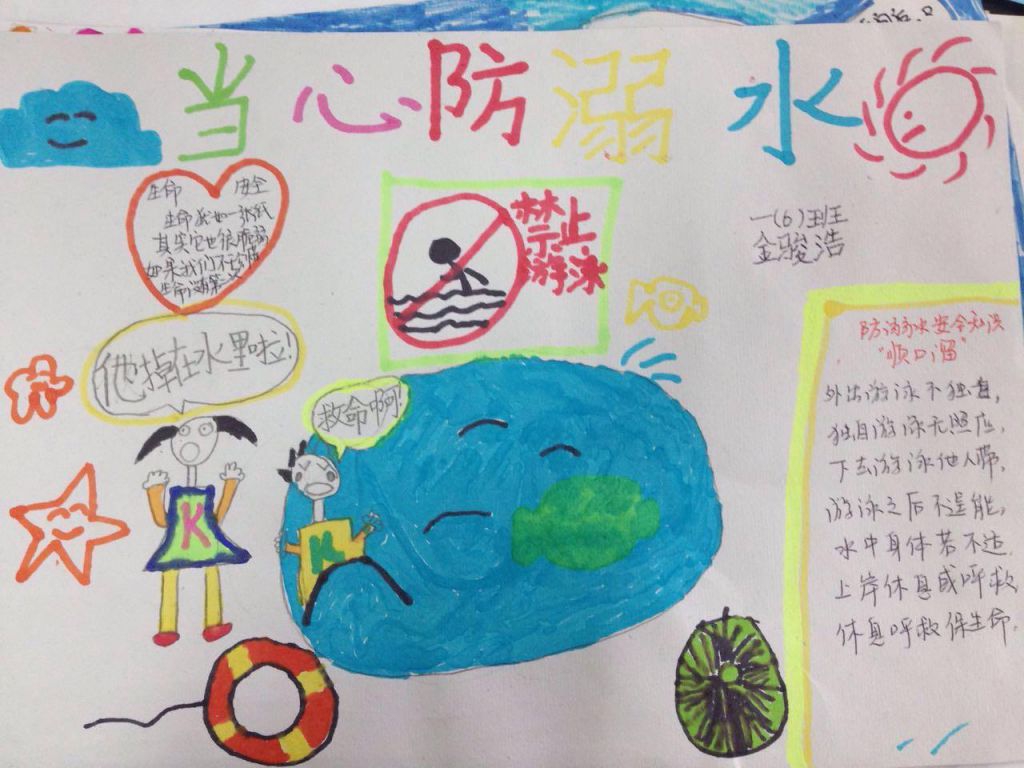 当心防溺水
生命 安全
生命就如一张纸
其实它也很脆弱
如果我们不珍惜
生命
他掉在水里啦!
救命啊!
禁止
游泳
一(6)班
金骏浩
防溺水安全知识
"顺口溜"
外出游泳不独自,
独自游泳无照应,
下去游泳他人带,
游泳之后不逞能,
水中身体若不适
上岸休息或呼救
休息呼救保生命.
K
K